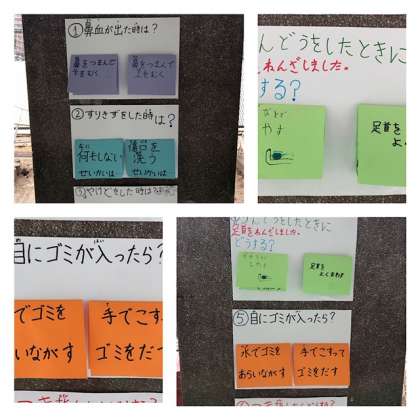 ①鼻血が出た時は？
鼻をつまんで
鼻をつまんで
②すりきずをした時は？
何もしない
せいかいは
傷口を
洗う
せいかいは
③やけどをした時は?
んどうをしたときに
ねんざしました。
する?
やす
足首を
よ
目にゴミが入ったら?
でゴミを
いながす
手でこす
ゴミをだ
うんどうをしたときに
足首をねんざしました。
どうする?
足首を
よくまわす
⑤目にゴミが入ったら?
水でゴミを
あらいながす
手でこすって
ゴミをだす